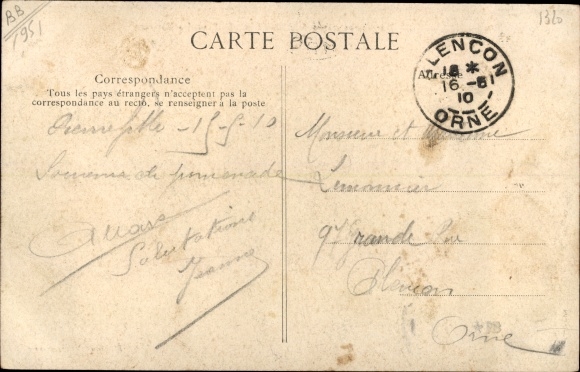 BB
1951
1320
CARTE POSTALE
Correspondance
Tous les pays étrangers n'acceptent pas la
correspondance au recto, se renseigner à la poste
Pierrefitte - 15-5-10
Souvenir de promenade
Salutations
Jeanne
Adresse
ALENCON
18 *
16 -5
10
ORNE
Monsieur et Madame
Lemonnier
97 Grande Rue
Alençon
Orne